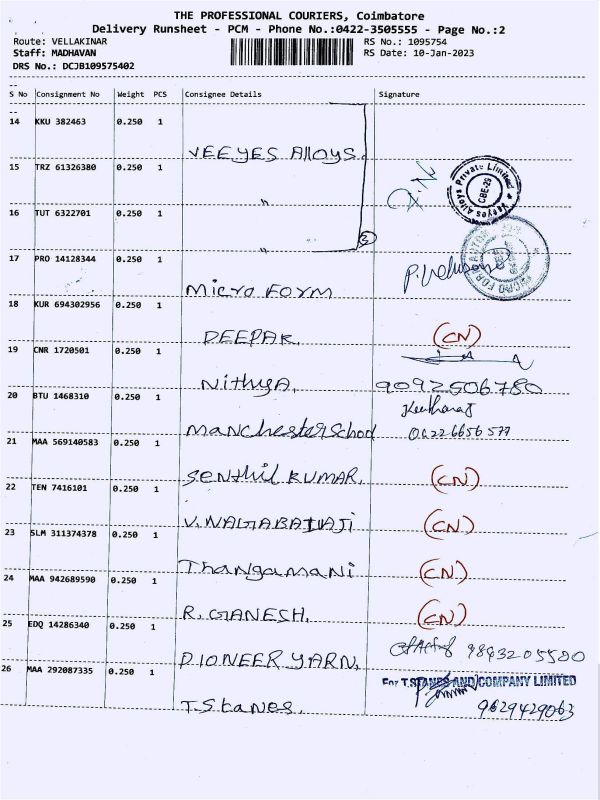 THE PROFESSIONAL COURIERS, Coimbatore
Delivery Runsheet - PCM - Phone No.:0422-3505555 - Page No.:2
Route: VELLAKINAR RS No.: 1095754
Staff: MADHAVAN RS Date: 10-Jan-2023
DRS No.: DCJB109575402
S No Consignment No Weight PCS Consignee Details Signature
14 KKU 382463 0.250 1
VEEYES Alloys.
15 TRZ 61326380 0.250 1
"
Veeyes Alloys Private Limited
CBE-29
16 TUT 6322701 0.250 1
" 3
17 PRO 14128344 0.250 1
Micro Form
18 KUR 694302956 0.250 1
DEEPAK. (CN)
19 CNR 1720501 0.250 1
Nithya. 9092506780
20 BTU 1468310 0.250 1
Manchester School 04226656577
21 MAA 569140583 0.250 1
Senthil KUMAR. (CN)
22 TEN 7416101 0.250 1
V.NAGABALAJI (CN)
23 SLM 311374378 0.250 1
Thangamani (CN)
24 MAA 942689590 0.250 1
R. GANESH. (CN)
25 EDQ 14286340 0.250 1
PIONEER YARN. 9843205580
26 MAA 292087335 0.250 1
For T.STANES AND COMPANY LIMITED
T.Stanes. 9629429063